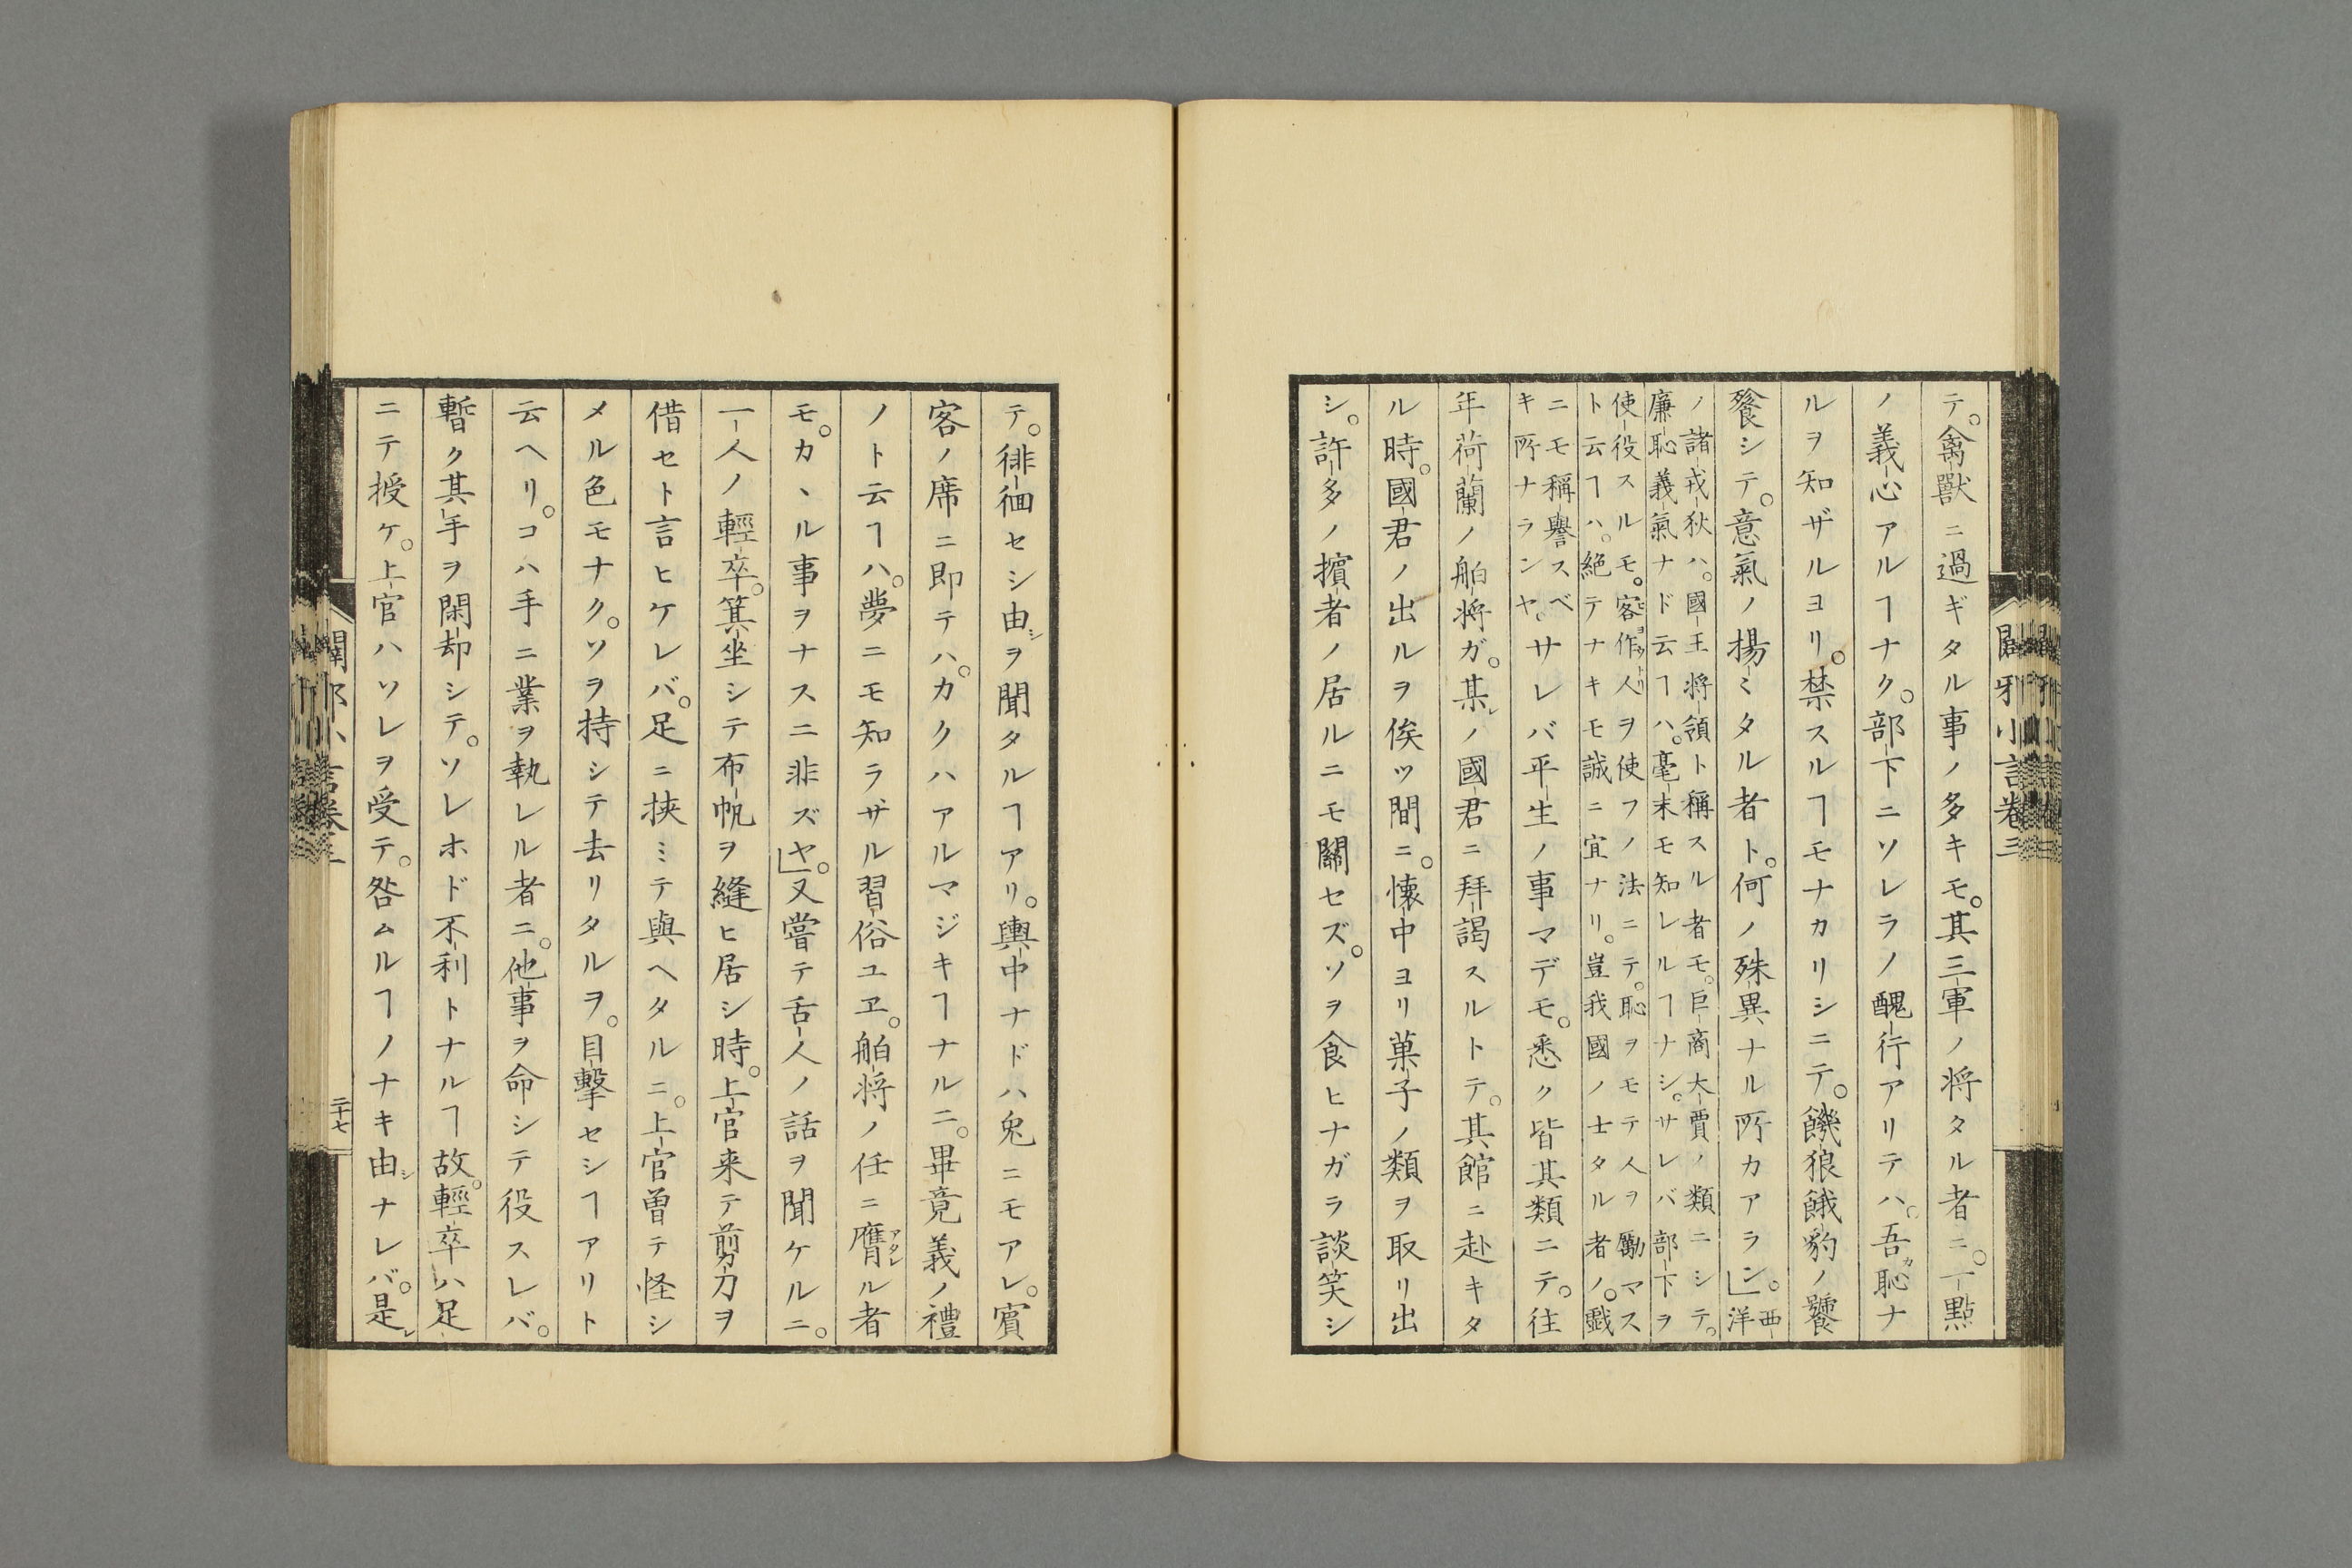 テ。禽獸ニ過ギタル事ノ多キモ。其三軍ノ将タル者ニ。一點
ノ義心アルヿナク。部下ニソレラノ醜行アリテハ。吾恥ナ
ルヲ知ザルヨリ。禁スルヿモナカリシニテ。饑狼餓豹ノ饕
餮シテ。意氣ノ揚ミタル者ト。何ノ殊異ナル所カアラン」。西洋
ノ諸戎狄ハ。國王将領ト稱スル者モ。巨商大賈ノ類ニシテ。
廉恥義氣ナド云ヿハ。毫末モ知レルヿナシ。サレバ部下ヲ
使役スルモ。客作人ヲ使フノ法ニテ。恥ヲモテ人ヲ勵マス
ト云ヿハ。絶テナキモ誠ニ宜ナリ。豈我國ノ士タル者ノ。戯
ニモ稱譽スベ
キ所ナランヤ。サレバ平生ノ事マデモ。悉ク皆其類ニテ。往
年荷蘭ノ舶将ガ。某ノ國君ニ拜謁スルトテ。其館ニ赴キタ
ル時。國君ノ出ルヲ俟ツ間ニ。懷中ヨリ菓子ノ類ヲ取リ出
シ。許多ノ擯者ノ居ルニモ關セズ。ソヲ食ヒナガラ談笑シ
闢邪小言卷三
テ。徘徊セシ由ヲ聞タルヿアリ。輿中ナドハ兎ニモアレ。賓
客ノ席ニ即テハ。カクハアルマジキヿナルニ。畢竟義ノ禮
ノト云ヿハ。夢ニモ知ラザル習俗ユヱ。舶将ノ任ニ膺ル者
モ。カヽル事ヲナスニ非ズヤ」。又嘗テ舌人ノ話ヲ聞ケルニ。
一人ノ輕卒。箕坐シテ布帆ヲ縫ヒ居シ時。上官来テ剪刀ヲ
借セト言ヒケレバ。足ニ挾ミテ與ヘタルニ。上官曽テ怪シ
メル色モナク。ソヲ持シテ去リタルヲ。目撃セシヿアリト
云ヘリ。コハ手ニ業ヲ執レル者ニ。他事ヲ命シテ役スレバ。
暫ク其手ヲ閑却シテ。ソレホド不利トナルヿ故。輕卒ハ足
ニテ授ケ。上官ハソレヲ受テ。咎ムルヿノナキ由ナレバ。是
闢邪小言卷三
二十七